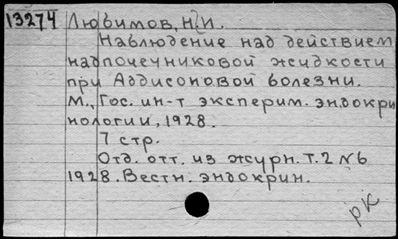 13274 Любимов, Н.И.
Наблюдение над действием
надпочечниковой жидкости
при Аддисоновой болезни.
М., Гос. ин-т эксперим. эндокри
нологии, 1928.
7 стр.
Отд. отт. из журн. Т.2 №6
1928. Вестн. эндокрин.
рк